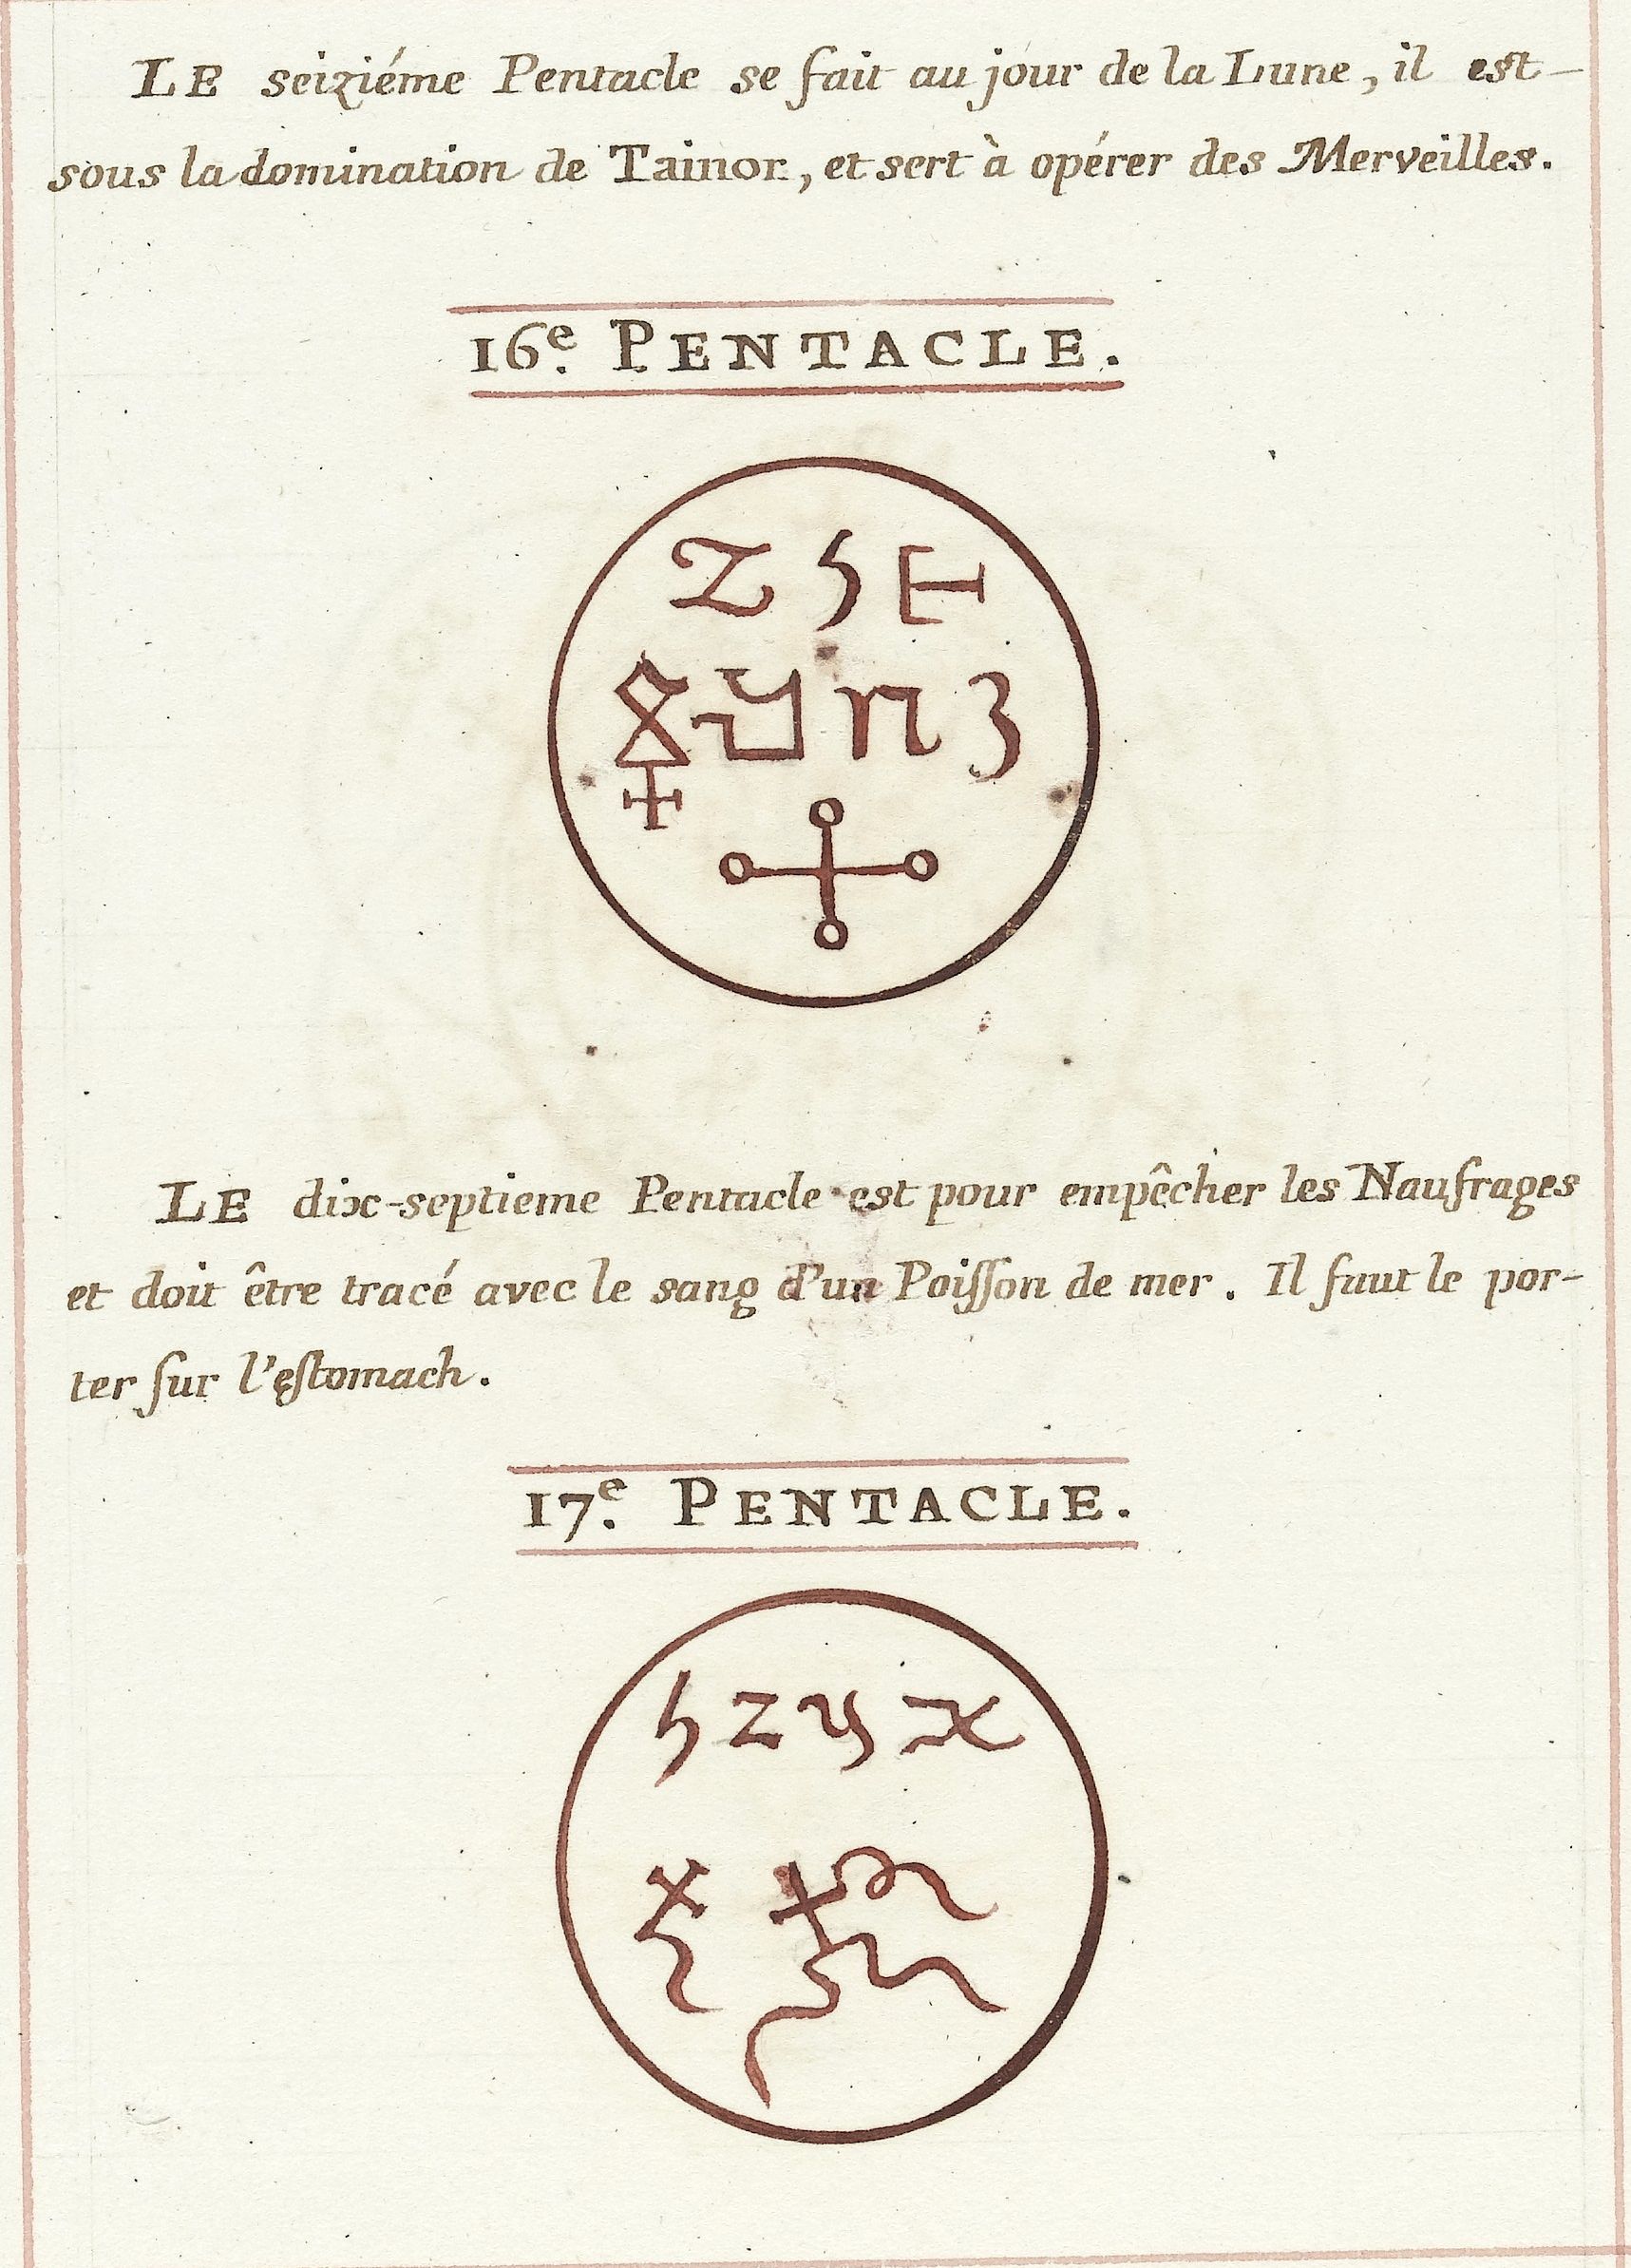 LE seiziéme Pentacle se fait au jour de la Lune, il est
sous la domination de Tainor, et sert à opérer des Merveilles.
16e. PENTACLE.
LE dix-septieme Pentacle est pour empêcher les Naufrages
et doit être tracé avec le sang d'un Poiſſon de mer. Il faut le por-
ter ſur l'eſtomach.
17e. PENTACLE.